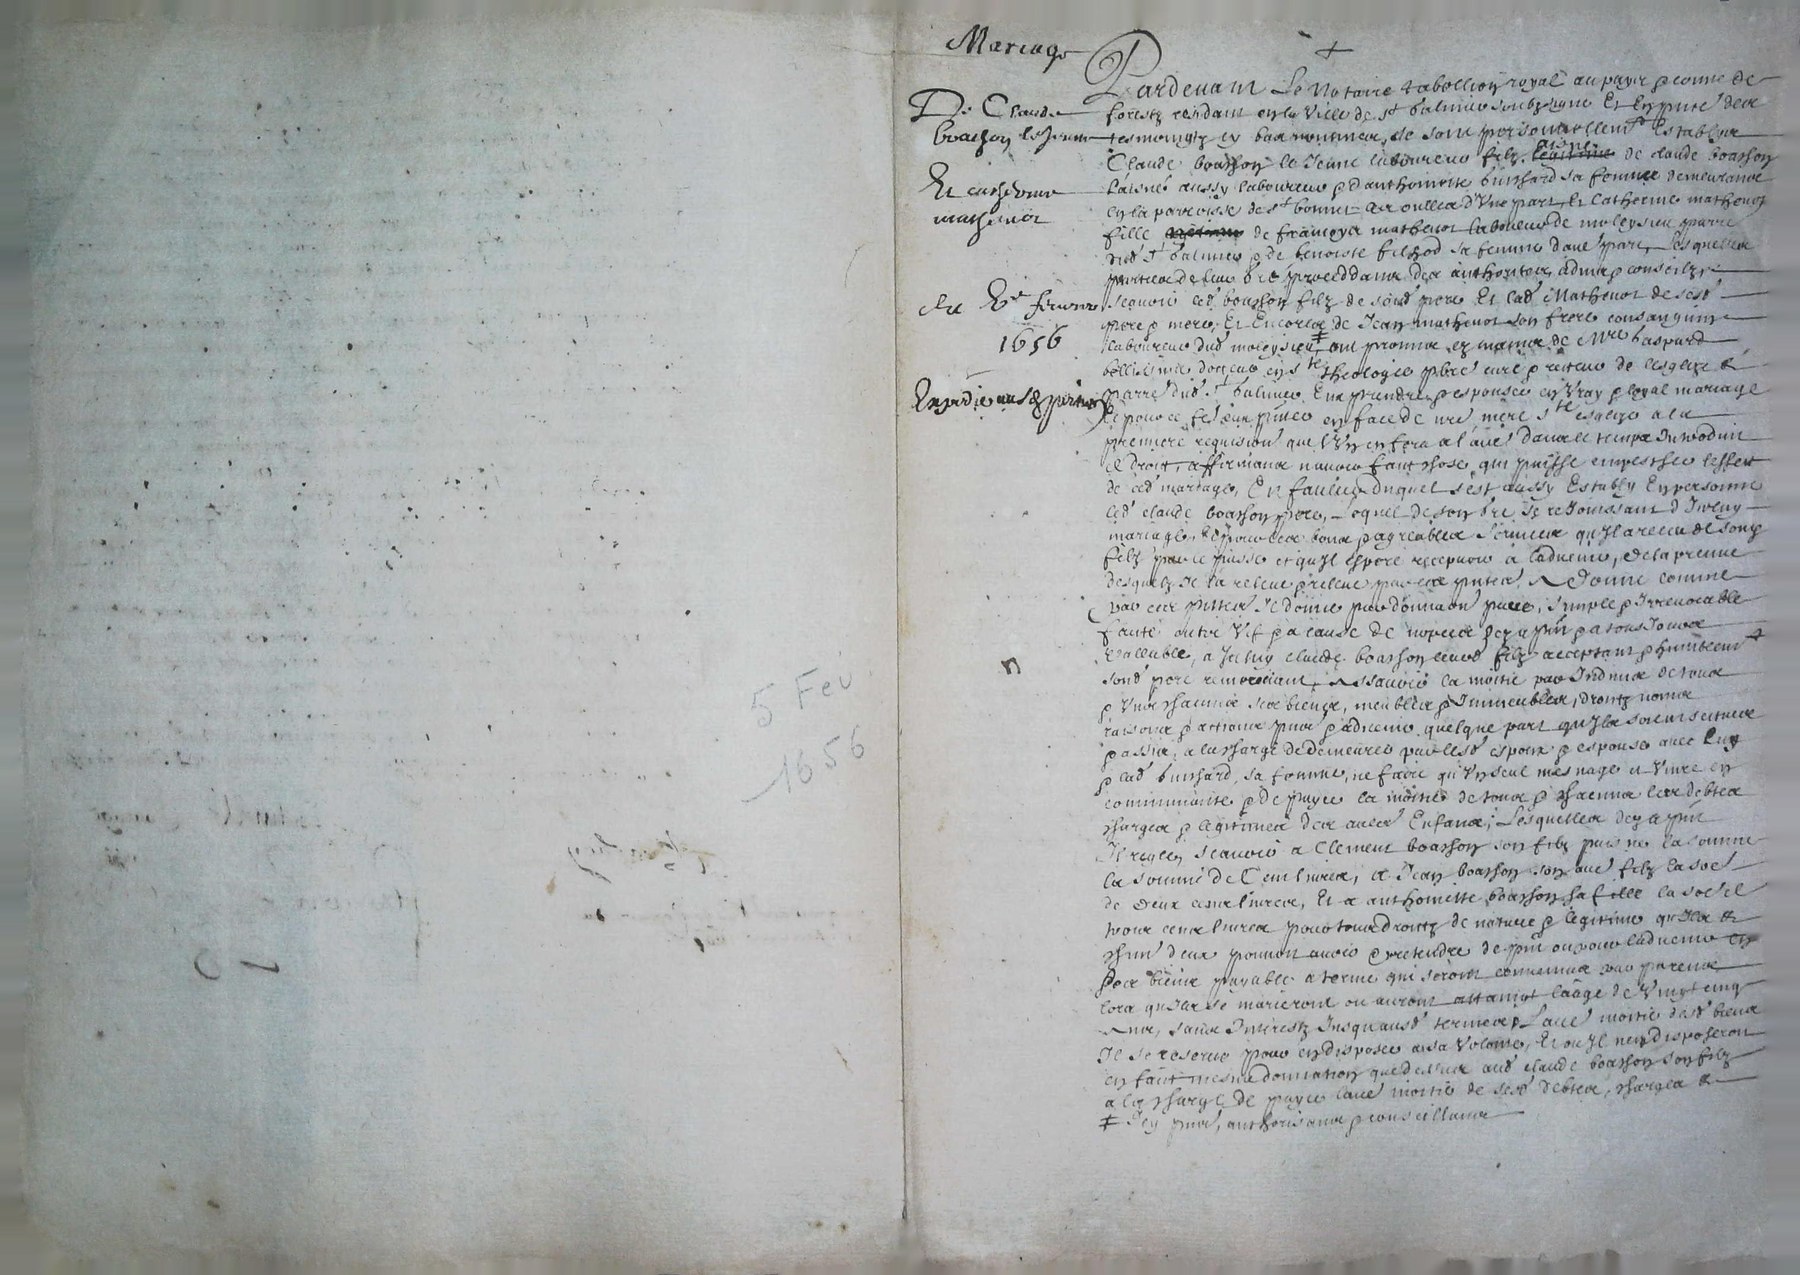 Mariage
De Claude
boasson le Jeune
Et catherine
mathevot
du Ve febvrier
1656
Expedié aus parties
5 Fev
1656
Pardevant Le Notaire tabellion royal au pays p conté de
forestz residant en la Ville de St Galmier soubzsigné Et en pnce des
tesmoingtz en bas nommes, se sont personnellemt establys
Claude boasson le Jeune laboureur filz aisné de claude boasson
Laisné aussy laboureur p d'anthoinette buishard sa femme demeurant
en la parroisse de St bonnet les oulles d'Une part, Et Catherine mathevot
fille de françoys mathevot laboureur de moleysieu parre
dud St Galmier p de benoiste sa femme daue part, lesquelles
parties de leur gre proceddans des authorites, advis p conseilz,
scavoir led boasson filz de sond pere Et lad Mathevot de sesd
pere p mere, Et Encores de Jean mathevot son frere consanguin
laboureur dud moleysieu ‡ ont promis es mains de Mre Gaspard
docteur en ste theologie pbre curé p recteur de lesglise
parre dud St Galmier Eux prendre p espouser en Vray p loyal mariage
Et pour ce fe se pnter en face de nre mere ste esglize a la
premiere requisition que l'Un en fera a l'aue dans le temps Introduit
de droit, affirmans n'avoir fait chose qui puisse empescher leffect
de ced mariage, En faveur duquel s'est aussy Estably En personne
led claude boasson pere, Lequel de son gre se rejouissant d'Iceluy
mariage, Et pour les bons p agreables services qu'Il a receu de sond
filz par le passe et qu'Il espere recepvoir à ladvenir, de la preuve
desquelz Il la releve p releve par ces pntes, A donne comme
par ces pntes Il donne par donnaon pure, simple p Irrevocable
faite entre Vifz p a cause de nopces des a pnt p a tousjours
Vallable, a Iceluy claude boasson sond filz acceptant p humblemt
sond pere remerciant, Assavoir la moitie par Indivis de tous
p Uns chacuns ses biens, meubles p Immeubles, droitz noms
raisons p actions pns p advenir quelque part qu'Ilz soient scitues
p assis, a la charge de demeurer par lesd espoux p espouse avec luy
p lad buishard sa femme, ne faire qu'Un seul mesnage et Vivre en
communauté p de payer la moitié de tous p chacuns les debtes
charges p legitimes des aues Enfans; Lesquelles des a pnt
Il regle, scavoir a Clement boasson son filz puisné la somme
la somme de Cent livres, a Jean boasson son aue filz la soe
de deux cens livres, Et a anthoinette boasson sa fille la soe de
trois cens livres pour tous droitz de nature p legitime qu'Ilz
chun deux pourroit avoir p pretendre de pnt ou pour ladvenir en
ses biens payable a terme qui seront convenus par parens
lors qu'Ilz se marieront ou auront attaint laage de Vingt cinq
Ans, sans Interestz Jusqu'ausd termes, L'aue moitie desd biens
Il se reserve pour en disposer a sa Volonte, Et ou Il n'en disposeroit
en fait mesme donnation que dessus aud claude boasson son filz
a la charge de payer laue moitie de sesd debtes, charges
‡ Icy pnt, authorisans p conseillans